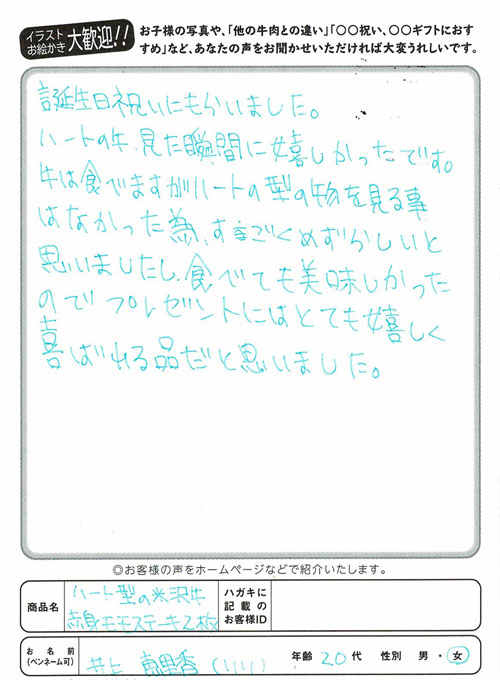 イラスト
お絵かき 大歓迎!!
お子様の写真や、「他の牛肉との違い」「〇〇祝い、〇〇ギフトにおす
すめ」など、あなたの声をお聞かせいただければ大変うれしいです。
誕生日祝いにもらいました。
ハートの牛、見た瞬間に嬉しかったです。
牛は食べますがハートの型の物を見る事
はなかった為、すごくめずらしいと
思いましたし、食べても美味しかった
のでプレゼントにはとても嬉しく
喜ばれる品だと思いました。
◎お客様の声をホームページなどで紹介いたします。
商品名
ハート型の米沢牛
赤身モモステーキ2枚
ハガキに
記載の
お客様ID
お名前
(ペンネーム可)
井上
年齢 20代 性別 男・女